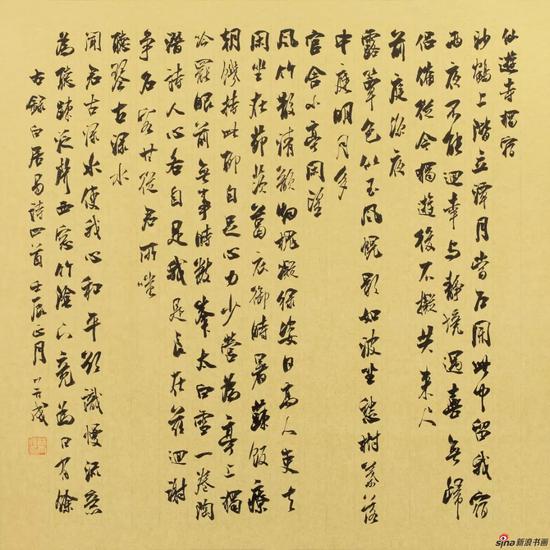 仙遊寺獨宿
沙鶴上階立潭月當戶開此中留我宿
兩夜不能迴幸與靜境遇喜無歸
侶催從今獨遊後不擬共來人
前庭涼夜
露簟色似玉風幌影如波坐愁樹葉落
中庭明月多
官舍小亭閑望
風竹散清韻煙槐凝綠姿日高人吏去
閑坐在茅茨葛衣御時暑蔬飯療
朝饑持此聊自足心力少營為亭上獨
吟罷眼前無事時數峯太白雪一卷陶
潛詩人心各自是我是良在茲迴謝
爭名客甘從君所嗤
聽古淥水
聞君古淥水使我心和平欲識慢流意
為聽疏泛聲西窗竹陰下竟日有餘
右錄白居易詩四首壬辰正月
sina新浪书画